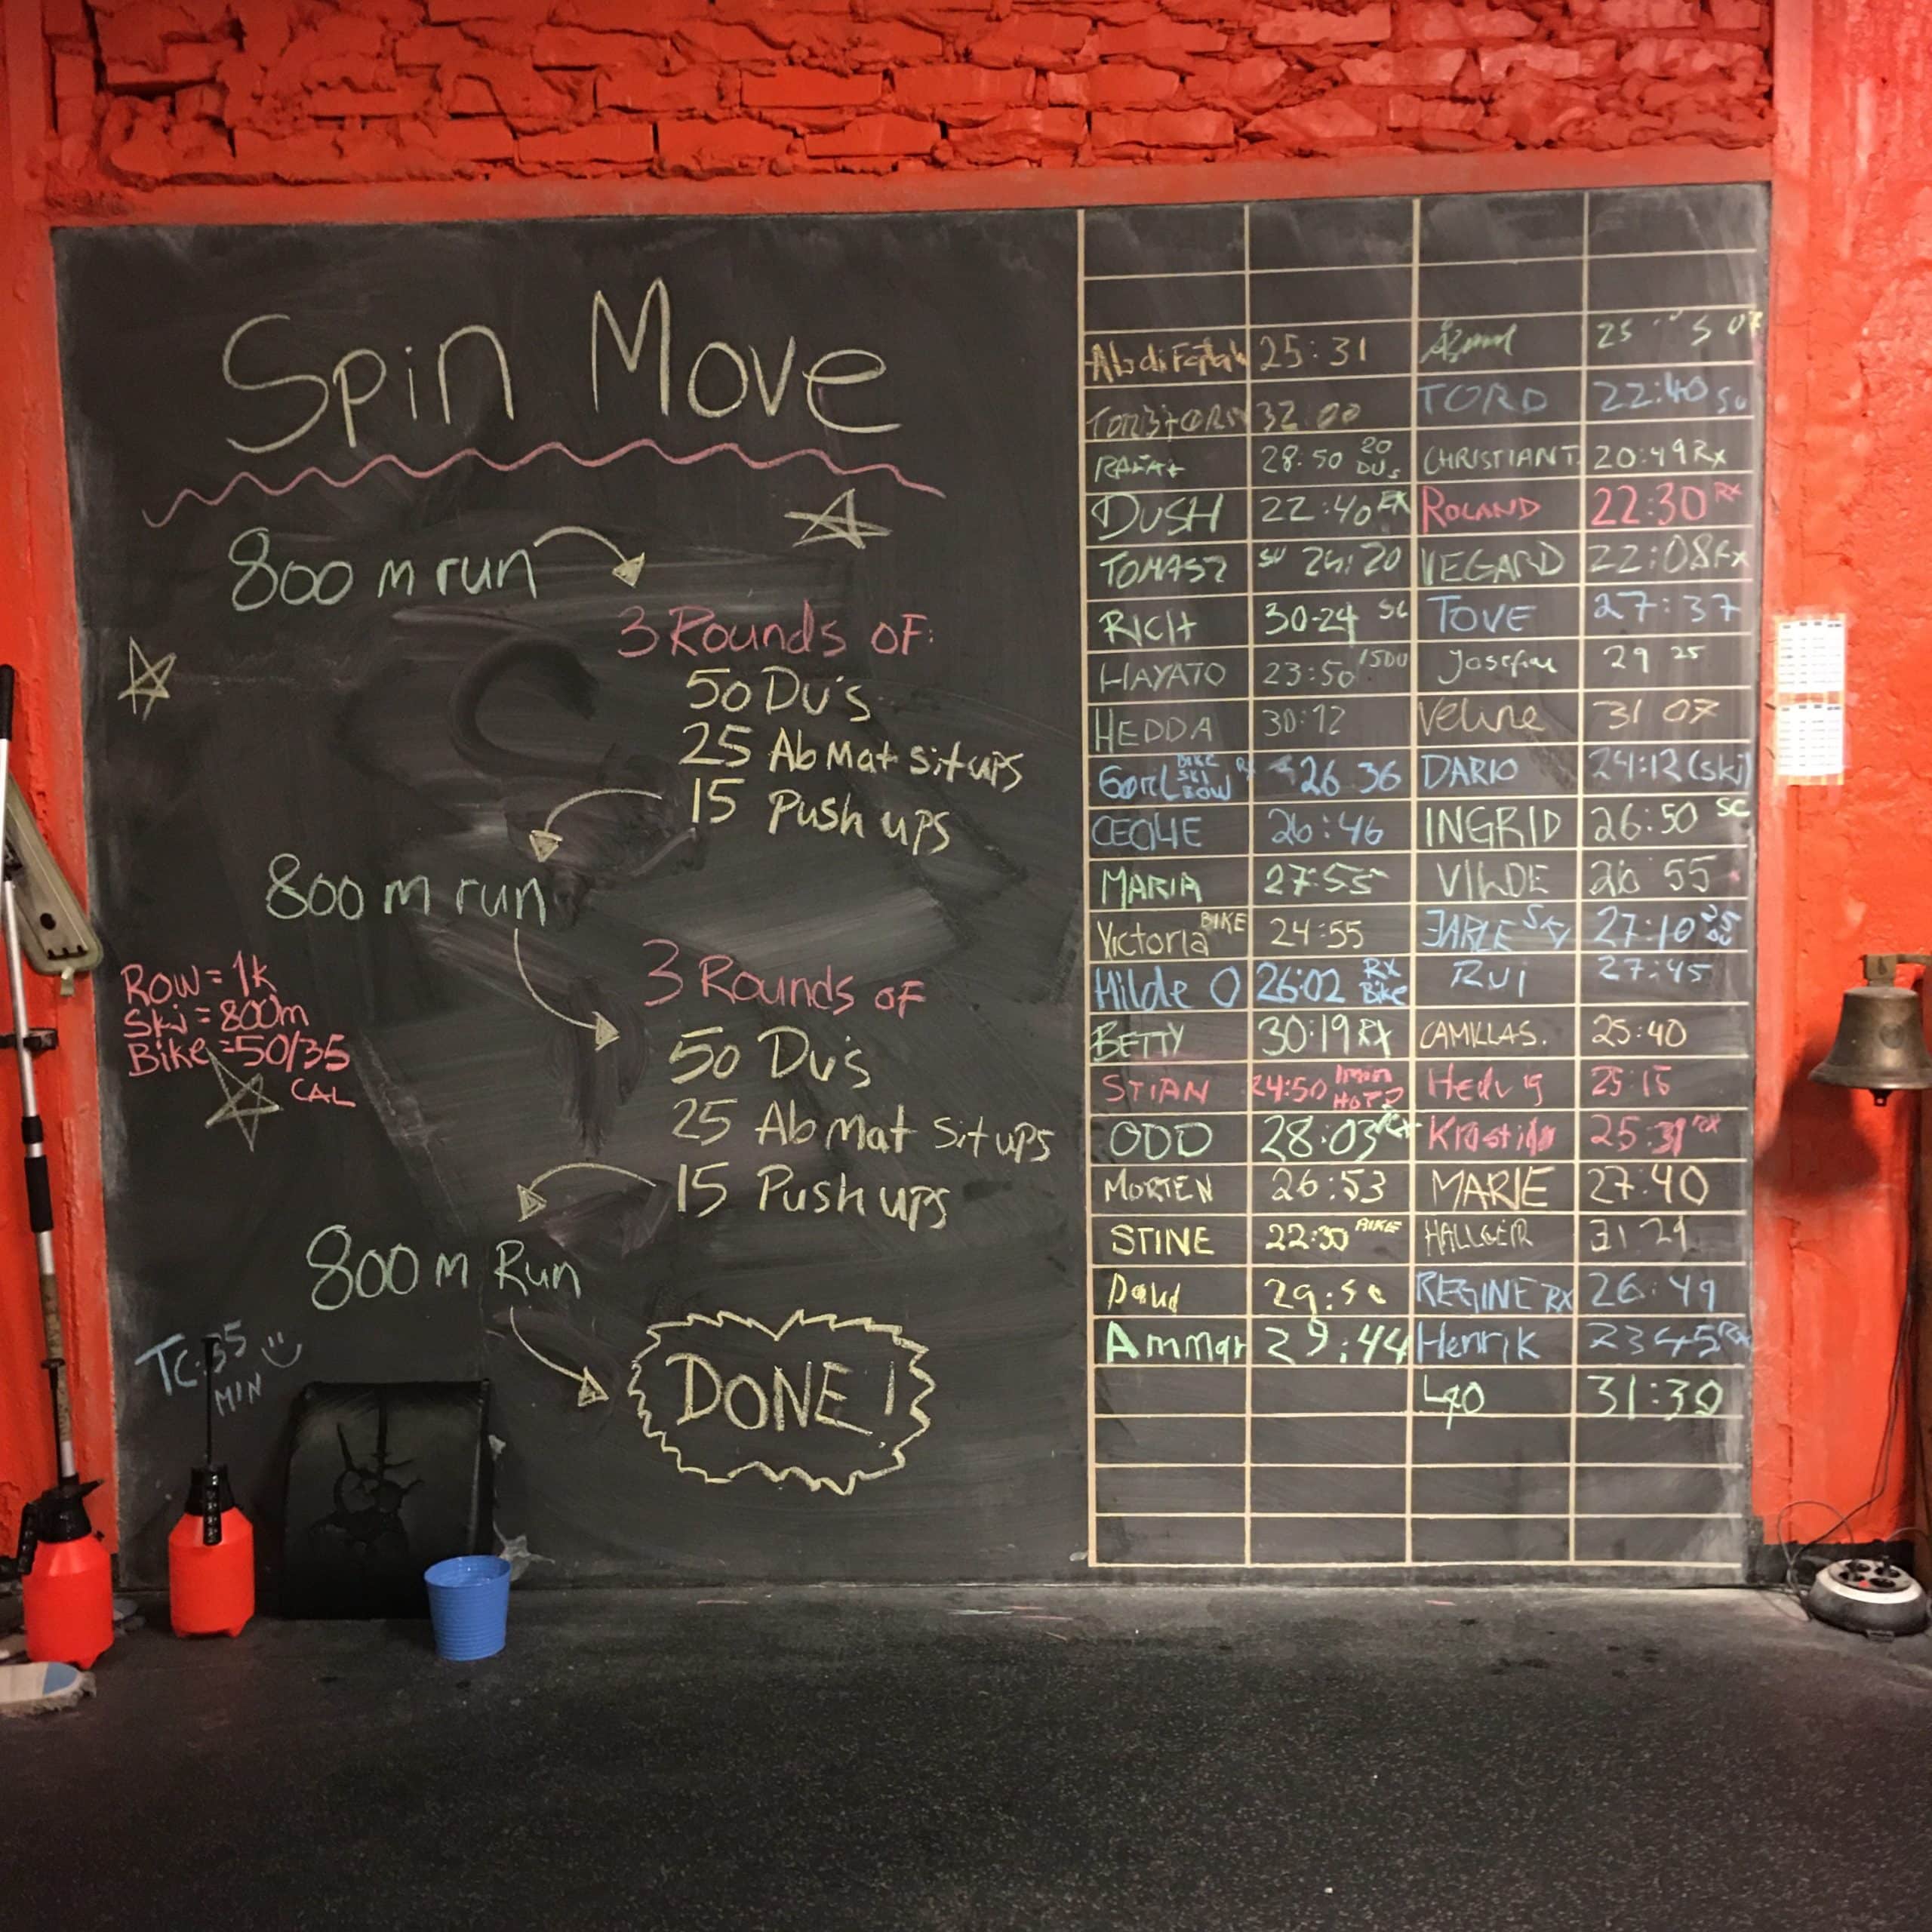 Spin Move
800 m run
3 Rounds OF:
50 Du's
25 Ab Mat sit ups
15 Push ups
800 m run
3 Rounds OF
50 Du's
25 Ab Mat Sit ups
15 Push ups
800 m Run
DONE!
Row = 1k
Ski = 800m
Bike = 50/35
CAL
TC: 35
MIN
25:31
32.00
TORD 22:40 SU
28:50 20 DUs
CHRISTIAN T. 20:49 Rx
DUSH 22:40 RX
ROLAND 22:30 RX
TOMASZ SU 24:20
VEGARD 22:08 Rx
RICH 30-24 SC
TOVE 27:37
HAYATO 23:50
Josefine 29 25
HEDDA 30:12
Veline 31 07
BIKE SKI ROW 26 36
DARIO 24:12 (ski)
CECILIE 26:46
INGRID 26:50 SC
MARIA 27:55
VILDE 26 55
Victoria BIKE 24:55
JARLE SKI 27:10
Hilde O 26:02 Rx Bike
RUI 27:45
BETTY 30:19 RX
CAMILLA S. 25:40
STIAN 24:50
Hedvig 25:15
ODD 28:03
25:31 RX
MORTEN 26:53
MARIE 27:40
STINE 22:30 BIKE
HALLGEIR 31 29
29:50
REGINE RX 26:49
Ammar 29:44
Henrik 23 45 Rx
Leo 31:30